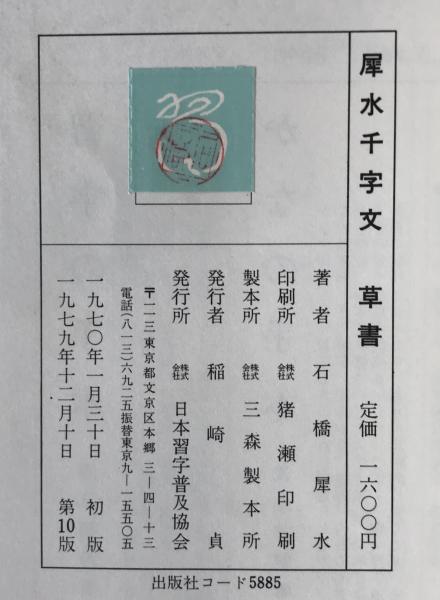 犀水千字文　草書　定価　一六〇〇円
著者　石橋犀水
印刷所　株式会社　猪瀬印刷
製本所　株式会社　三森製本所
発行者　稲崎　貞
発行所　株式会社　日本習字普及協会
〒一一三東京都文京区本郷三―四―十三
電話(八一三)六九二五振替東京九―一五五〇五
一九七〇年一月三十日　初版
一九七九年十二月十日　第10版
出版社コード5885